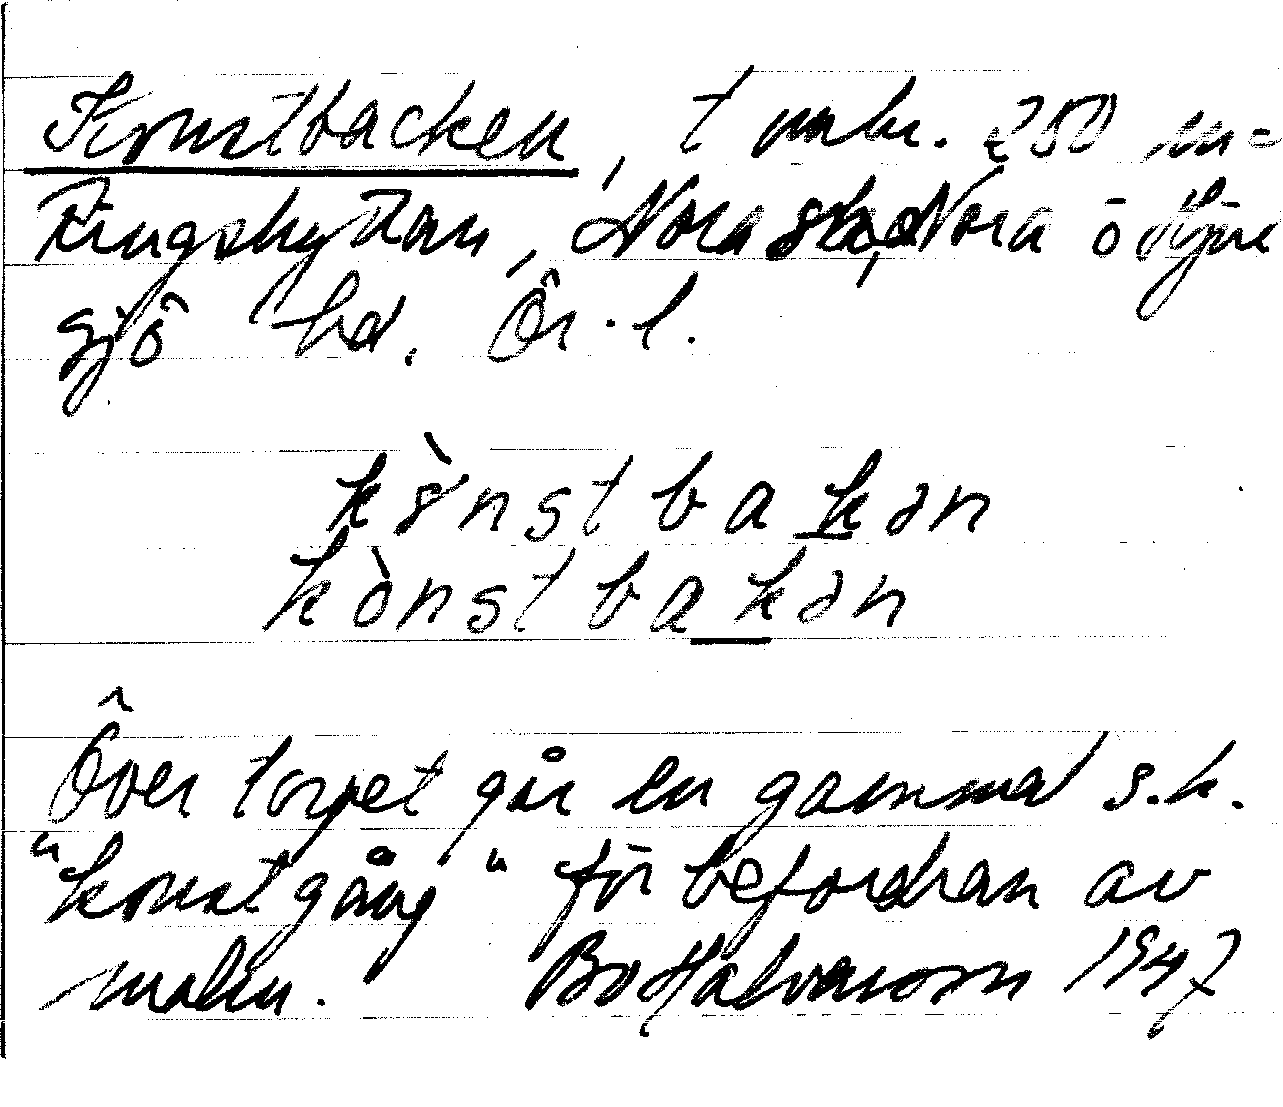 Konstbacken, t under. 250 un=
Ringshyttan, Nora sk, Nora o Hjul
sjö bd. Ör. l.
kònstbakən
kònstbakən
Över torpet går en gammal s.k.
"konstgång" för befordran av
malm. Bo Halvarson 1947